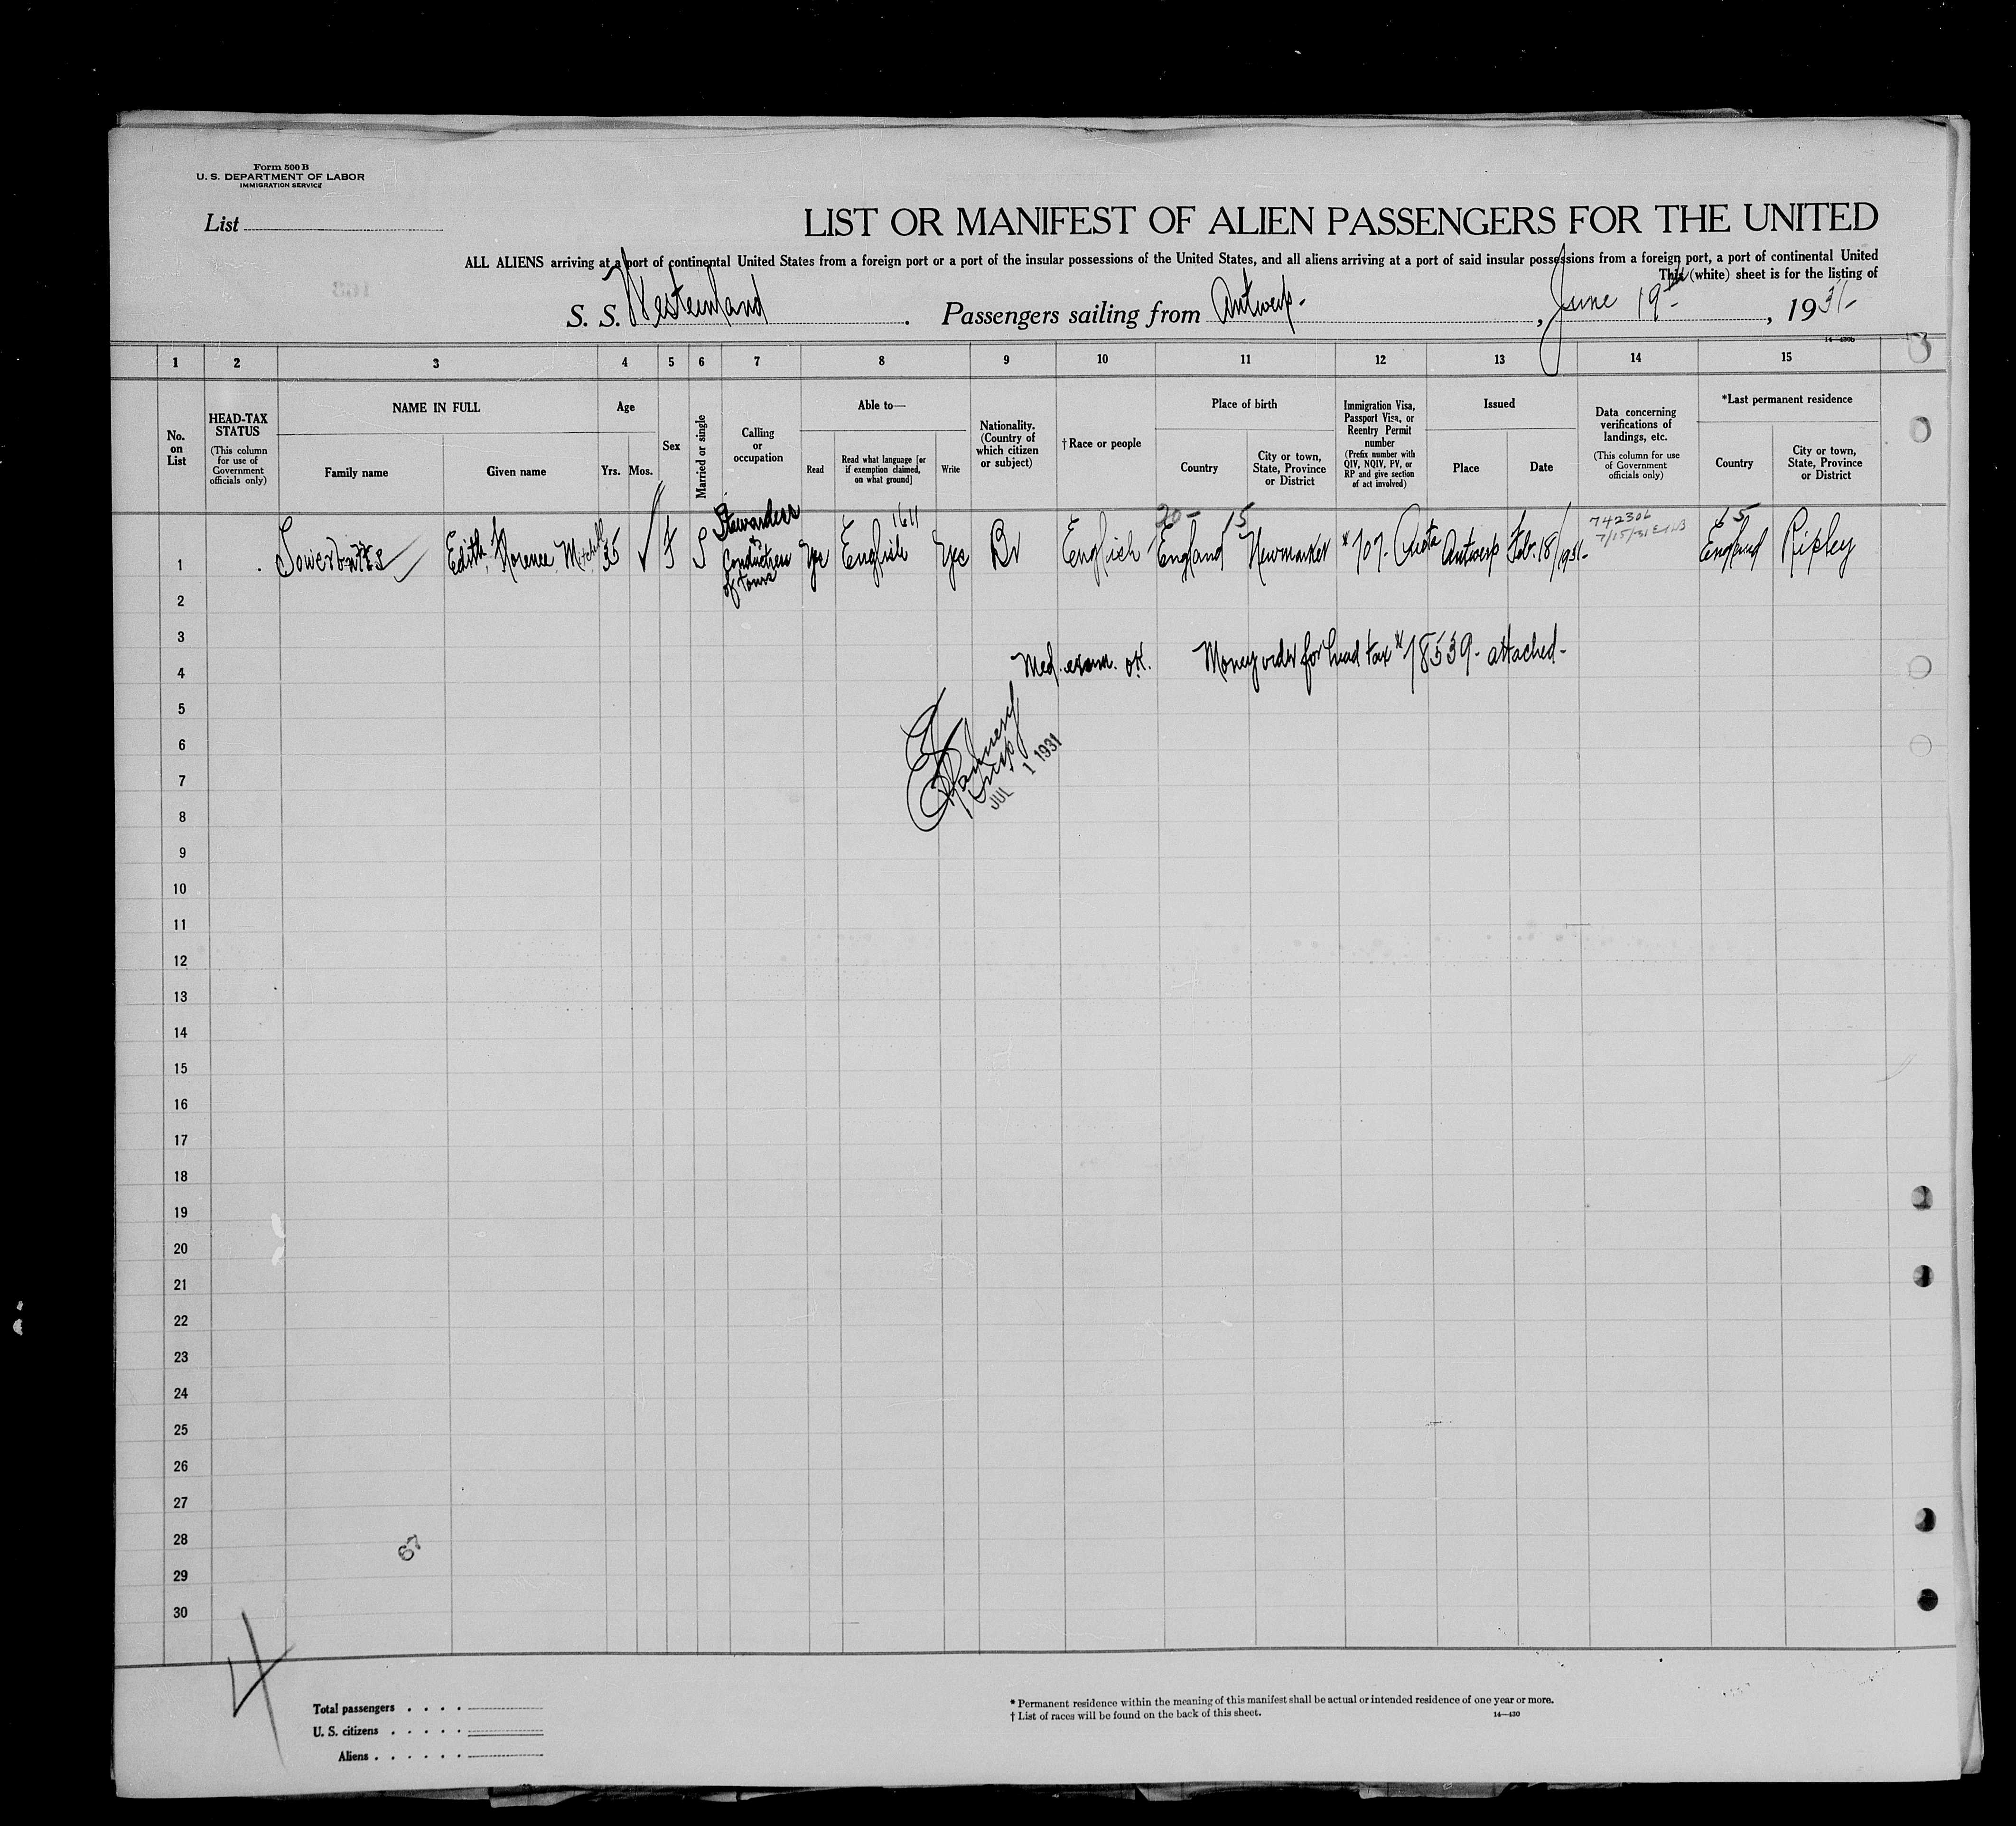 Form 500 B
U. S. DEPARTMENT OF LABOR
IMMIGRATION SERVICE
List
LIST OR MANIFEST OF ALIEN PASSENGERS FOR THE UNITED
ALL ALIENS arriving at a port of continental United States from a foreign port or a port of the insular possessions of the United States, and all aliens arriving at a port of said insular possessions from a foreign port, a port of continental United
This (white) sheet is for the listing of
S. S. Westernland . Passengers sailing from Antwerp- , June 19th- , 1931-
14—430b
1 2 3 4 5 6 7 8 9 10 11 12 13 14 15
No. on List
HEAD-TAX STATUS
(This column for use of Government officials only)
NAME IN FULL
Family name
Given name
Age
Yrs. Mos.
Sex
Married or single
Calling or occupation
Able to—
Read
Read what language [or if exemption claimed, on what ground]
Write
Nationality. (Country of which citizen or subject)
† Race or people
Place of birth
Country
City or town, State, Province or District
Immigration Visa, Passport Visa, or Reentry Permit number
(Prefix number with QIV, NQIV, PV, or RP and give section of act involved)
Issued
Place
Date
Data concerning verifications of landings, etc.
(This column for use of Government officials only)
*Last permanent residence
Country
City or town, State, Province or District
1611 20- 15 742306 65
7/15/31
1 Edith Florence Mitchell 35 F S Stewardess & Conductress of tours Yes English Yes Br English England Newmarket #707- Quota Antwerp Feb. 18/1931- England Ripley
2
3
Med. exam. OK. Money order for head tax #18539- attached-
4
5
6
7
JUL 1 1931
8
9
10
11
12
13
14
15
16
17
18
19
20
21
22
23
24
25
26
27
28
67
29
30
Total passengers . . . .
U. S. citizens . . . . .
Aliens . . . . . .
* Permanent residence within the meaning of this manifest shall be actual or intended residence of one year or more.
† List of races will be found on the back of this sheet.
14—430